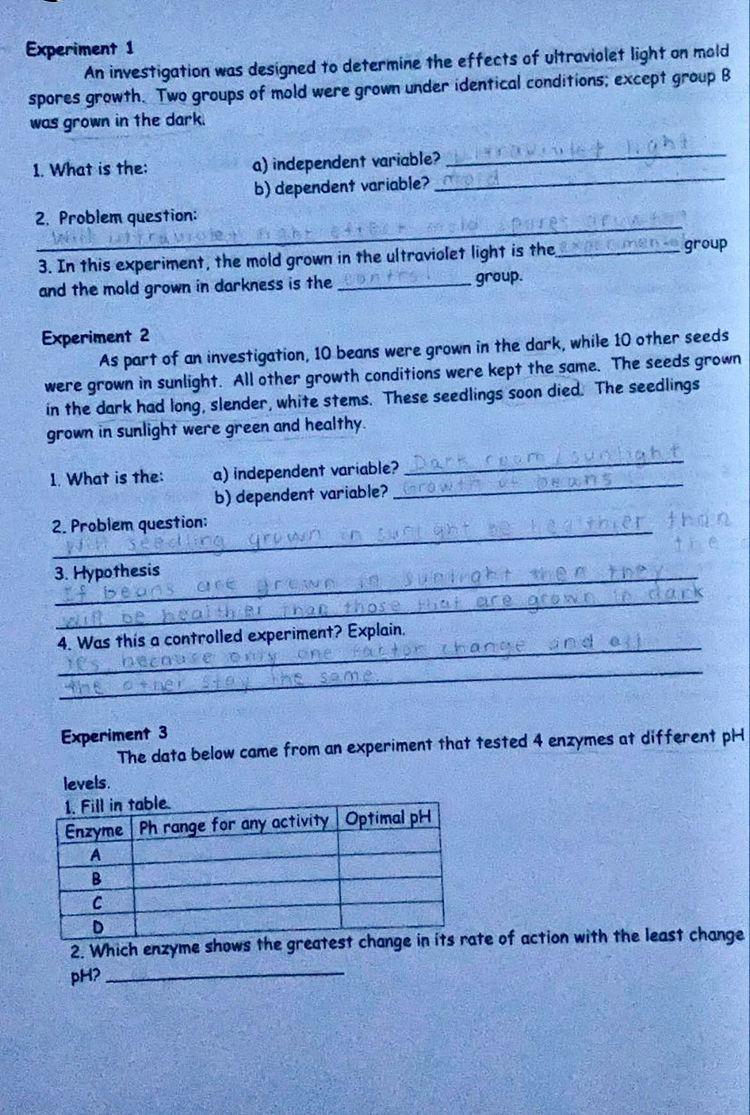 Experiment 1
An investigation was designed to determine the effects of ultraviolet light on mold
spores growth. Two groups of mold were grown under identical conditions; except group B
was grown in the dark.
1. What is the: a) independent variable? Ultraviolet light
b) dependent variable? mold
2. Problem question:
Will ultraviolet light effect mold spores
3. In this experiment, the mold grown in the ultraviolet light is the experimental group
and the mold grown in darkness is the control group.
Experiment 2
As part of an investigation, 10 beans were grown in the dark, while 10 other seeds
were grown in sunlight. All other growth conditions were kept the same. The seeds grown
in the dark had long, slender, white stems. These seedlings soon died. The seedlings
grown in sunlight were green and healthy.
1. What is the: a) independent variable? Dark room / sunlight
b) dependent variable? Growth of beans
2. Problem question:
Will seedling grown in sunlight be healthier than
the
3. Hypothesis
If beans are grown in sunlight then they
will be healthier than those that are grown in dark
4. Was this a controlled experiment? Explain.
Yes because only one factor change and all
the other stay the same.
Experiment 3
The data below came from an experiment that tested 4 enzymes at different pH
levels.
1. Fill in table.
Enzyme Ph range for any activity Optimal pH
A
B
C
D
2. Which enzyme shows the greatest change in its rate of action with the least change
pH?